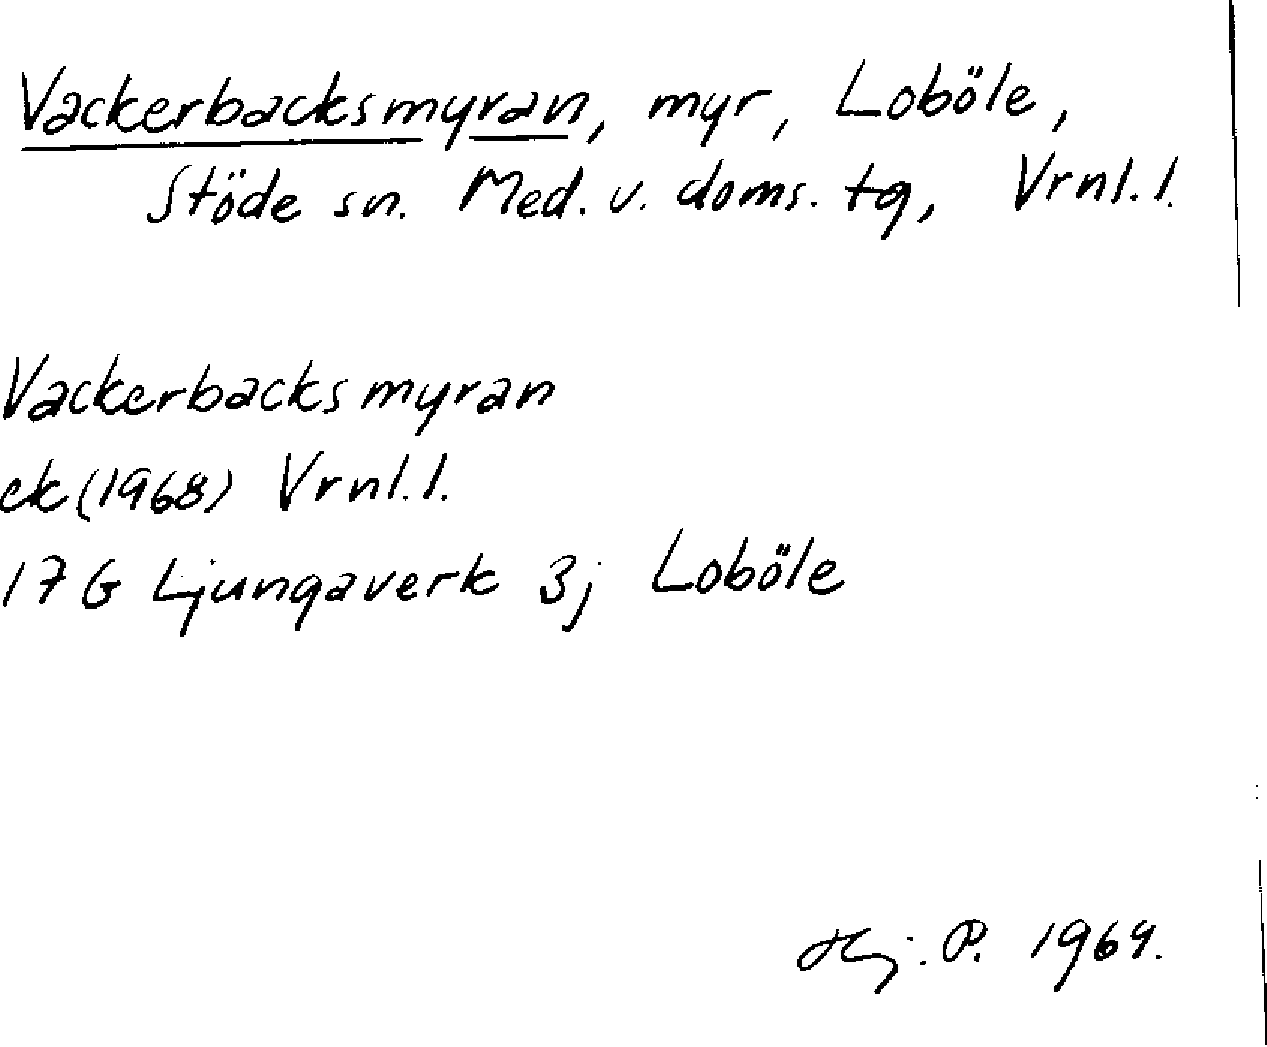 Vackerbacksmyran, myr, Loböle,
Stöde sn. Med. v. doms. tg, Vrnl. l.
Vackerbacksmyran
ek (1968) Vrnl. l.
17 G Ljungaverk 3j Loböle
Hj. P. 1969.